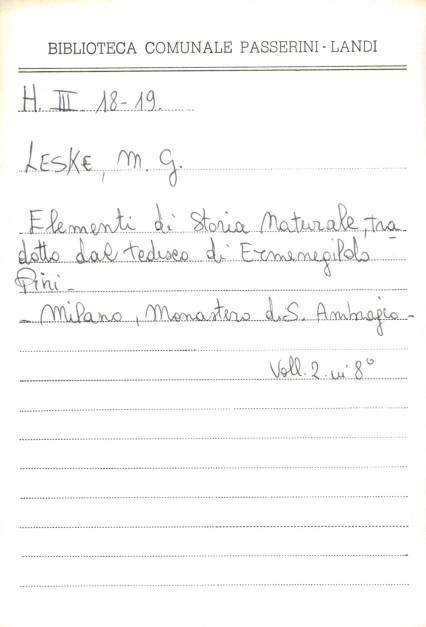 BIBLIOTECA COMUNALE PASSERINI - LANDI
H. III 18-19.
LESKE, M. G.
Elementi di Storia Naturale, tra
dotto dal tedesco di Ermenegildo
Pini -
- Milano, Monastero di S. Ambrogio -
Voll. 2. in 8°